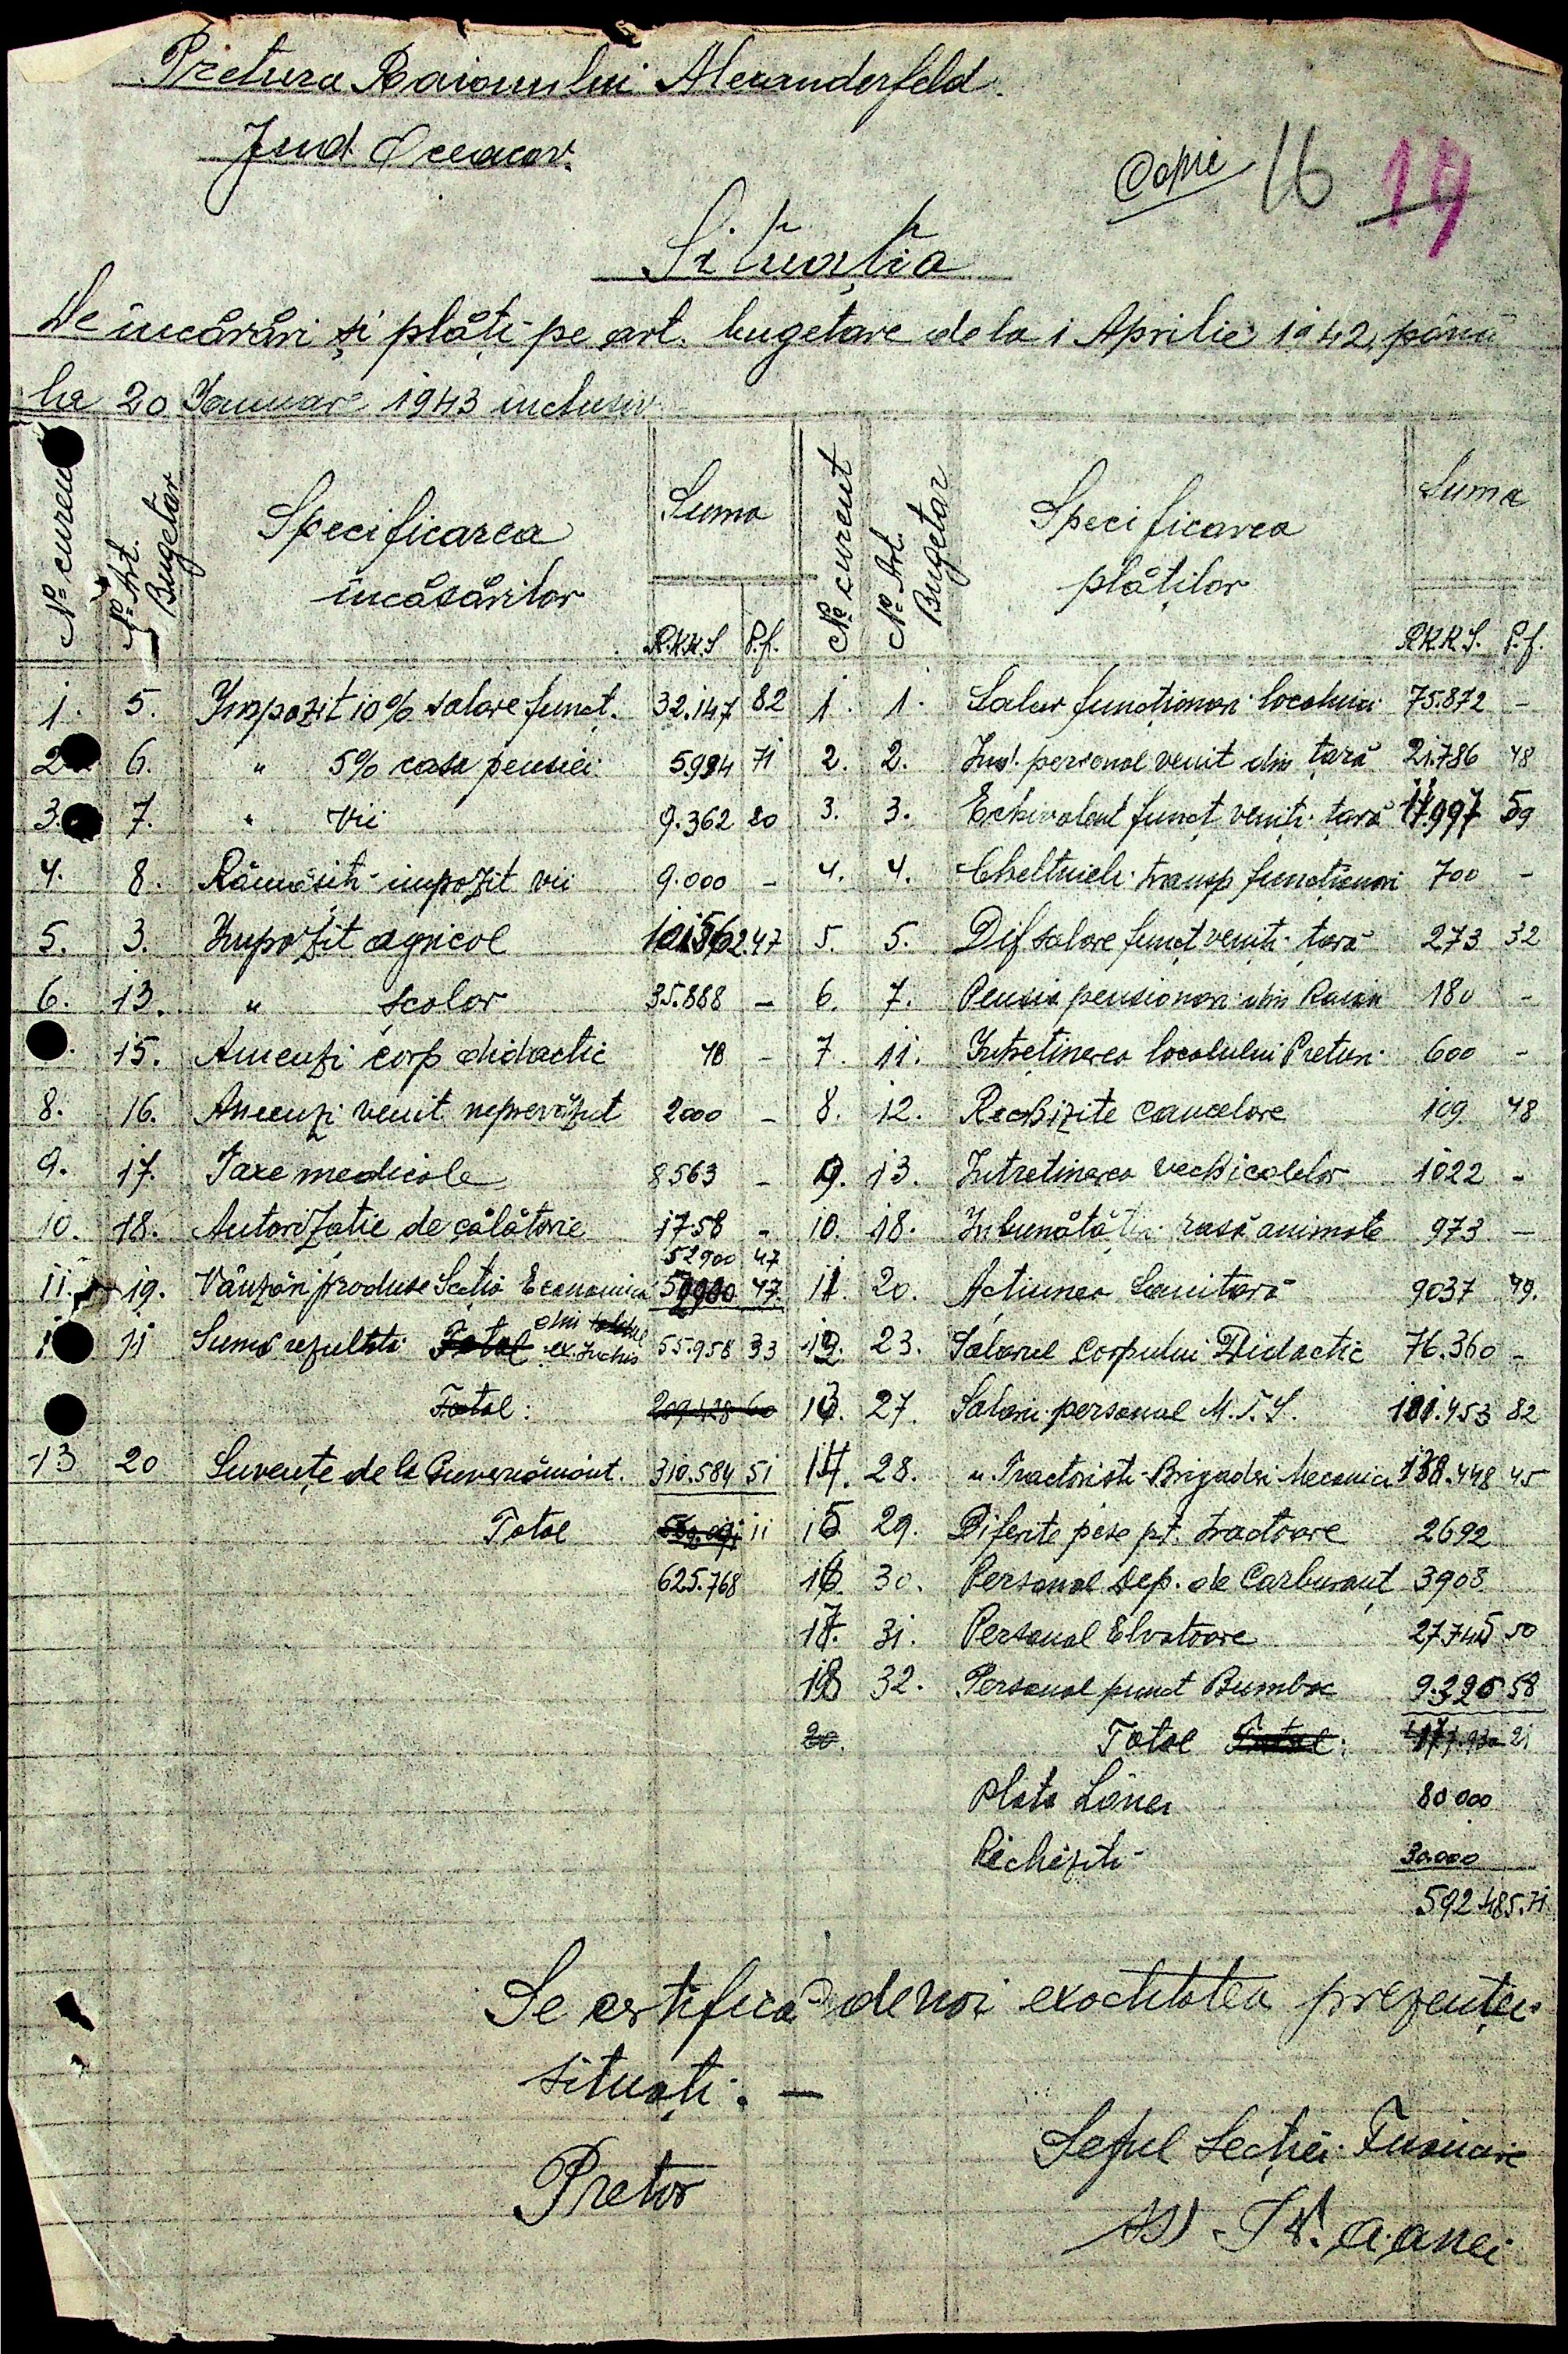 Pretura Raionului Alexanderfeld.
Jud Oceacov.
Copie 16 19
Situația
De încasări și plăți pe art. bugetare de la 1 Aprilie 1942, până
la 20 Ianuarie 1943 inclusiv
No curent No Art. Bugetar Specificarea încăsărilor Suma R.K.K.S P.f. No curent No Art. Bugetar Specificarea plăților Suma R.K.K.S. P.f.
1. 5. Impozit 10% salare funcț. 32.147 82 1. 1. Salar funcționari localnici 75.872 -
2 6. " 5% casa pensiei 5994 71 2. 2. personal venit din țară 21.786 48
3. 7. " Vii 9.362 20 3. 3. Echivalent funcț veniți țară 11.997 59
4. 8. Rămăsiți impozit vii 9.000 - 4. 4. Cheltuieli transp funcționari 700 -
5. 3. Impozit agricol 47 5. 5. Dif salare funcț veniți țară 273 32
6. 13. " școlar 35.888 - 6. 7. Pensia pensionari din Raion 180 -
15. Amenzi corp didactic 48 - 7. 11. Intreținerea localului Preturi 600 -
8. 16. Amenzi venit neprevăzut 2000 - 8. 12. Rechizite cancelare 109 48
9. 17. Taxe medicale 8563 - 9. 13. Intretinerea vechicolelor 1022 -
10. 18. Autorizatie de călătorie 1758 - 10. 18. Inbunătățiri rasă animale 973 -
52900 47
11. 19. Vânzări produse Secția Economica 47 11. 20. Acțiunea Sanitară 9037 49.
11 Sume rezultate Total din ex. Inchis 55.958 33 12. 23. Salariul Corpului Didactic 76.360 -
Total: 209428 60 13. 27. Salarii personal M.T.S. 101.453 82
13 20 Suvențe de la Guvernământ. 310.584 51 14. 28. " Tractoriști-Brigaderi Mecanici 138.448 45
Total 11 15 29. Diferite pese pt. tractoare 2692
625.768 16 30. Personal Dep. de Carburanț 3908
17. 31. Personal Elvatoare 27.745 50
18 32. Personal punct Bumbac 9.326 58
20. Total Total: 21
Plata Lânei 80 000
Richiziți 30.000
592.485.71
Se certifică de noi exactitatea prezentei
situații. —
Pretor
Șeful Secției Finanare
ss)